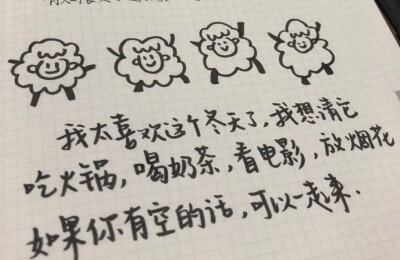 我太喜欢这个冬天了，我想请它
吃火锅，喝奶茶，看电影，放烟花
如果你有空的话，可以一起来.